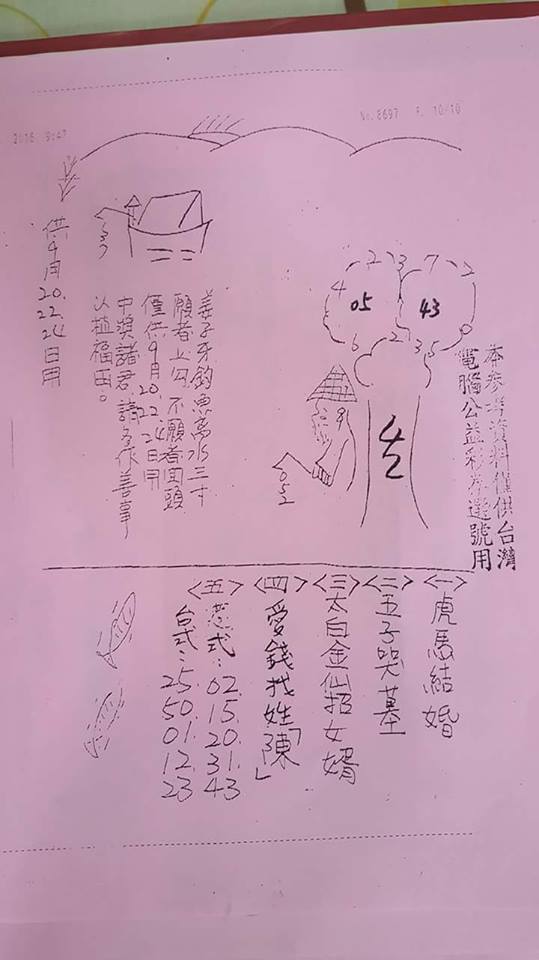 2016 9:47
No.8697 P. 10/10
供9月20.22.24日用
姜子牙釣魚高水三寸
願者上勾不願者回頭
僅供9月20.22.24日用
中獎諸君請多作善事
以植福田。
本參考資料僅供台灣
電腦公益彩券選號用
4 2 3 7 2
05 43
6 2 3 5 0
052
<一>虎馬結婚
<二>五子哭墓
<三>太白金仙招女婿
<四>愛錢找姓「陳」
<五>港式:02.15.20.31.43
台式:25.50.01.12.23